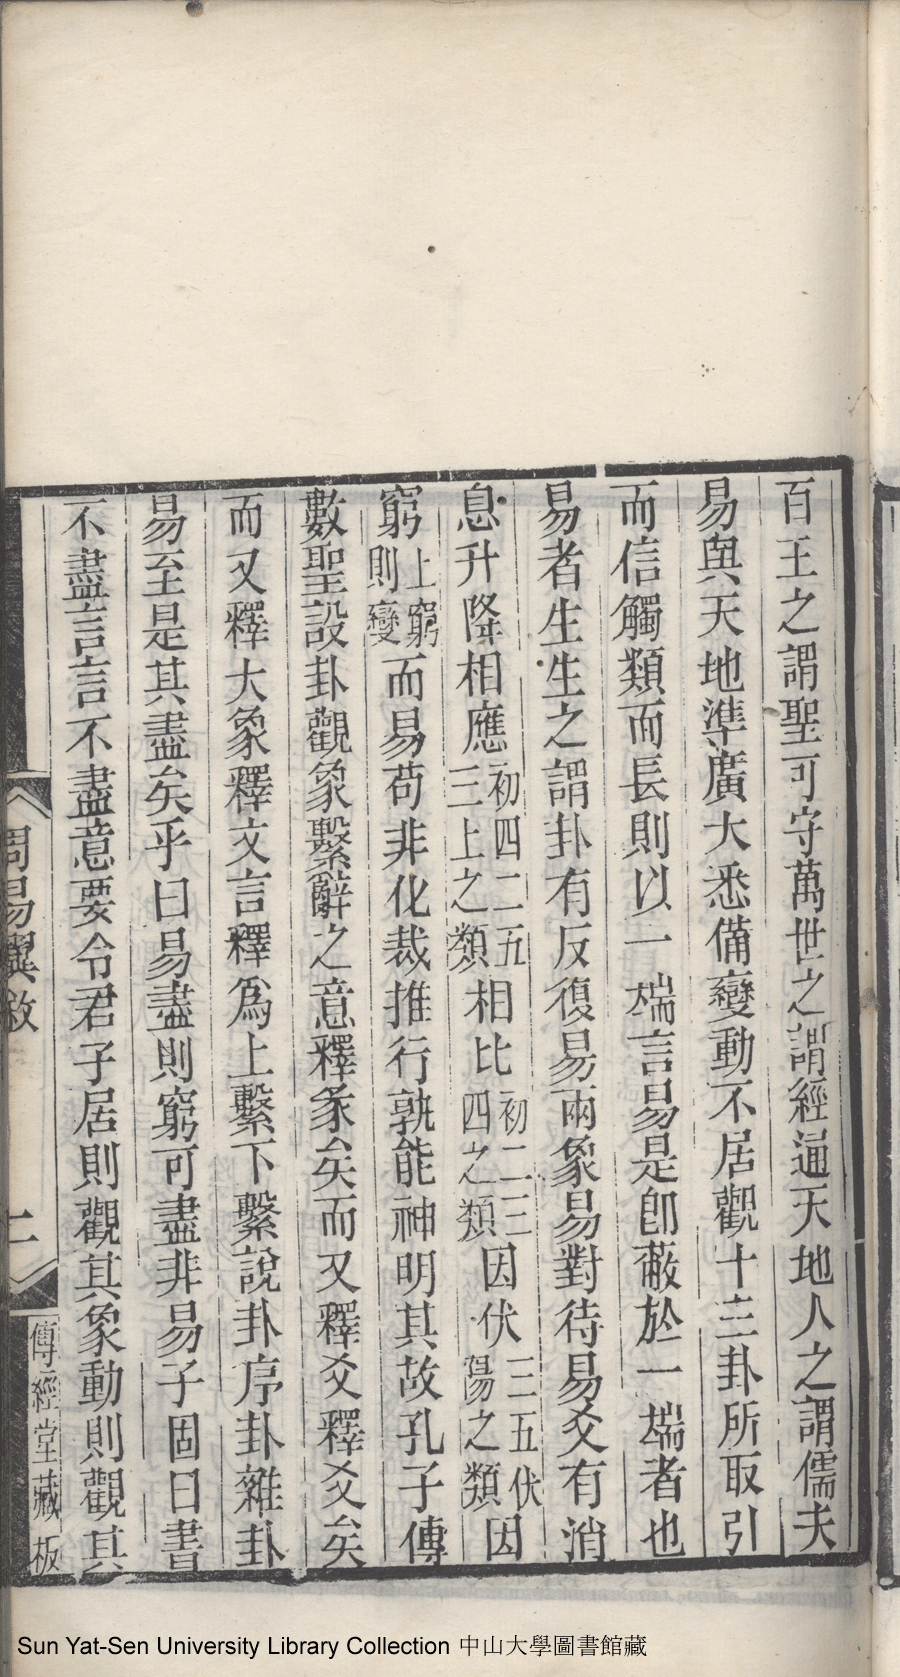 百王之謂聖可守萬世之謂經通天地人之謂儒夫
易與天地準廣大悉備變動不居觀十三卦所取引
而信觸類而長則以一端言易是卽蔽於一端者也
易者生生之謂卦有反復易兩象易對待易爻有消
息升降相應初四二五三上之類相比初二三四之類因伏三五伏陽之類因
窮上窮則變而易苟非化裁推行孰能神明其故孔子傳
數聖設卦觀象繫辭之意釋彖矣而又釋爻釋爻矣
而又釋大象釋文言釋爲上繫下繫說卦序卦雜卦
易至是其盡矣乎曰易盡則窮可盡非易子固曰書
不盡言言不盡意要令君子居則觀其象動則觀其
周易翼敘
二
傳經堂藏板
Sun Yat-Sen University Library Collection 中山大學圖書館藏